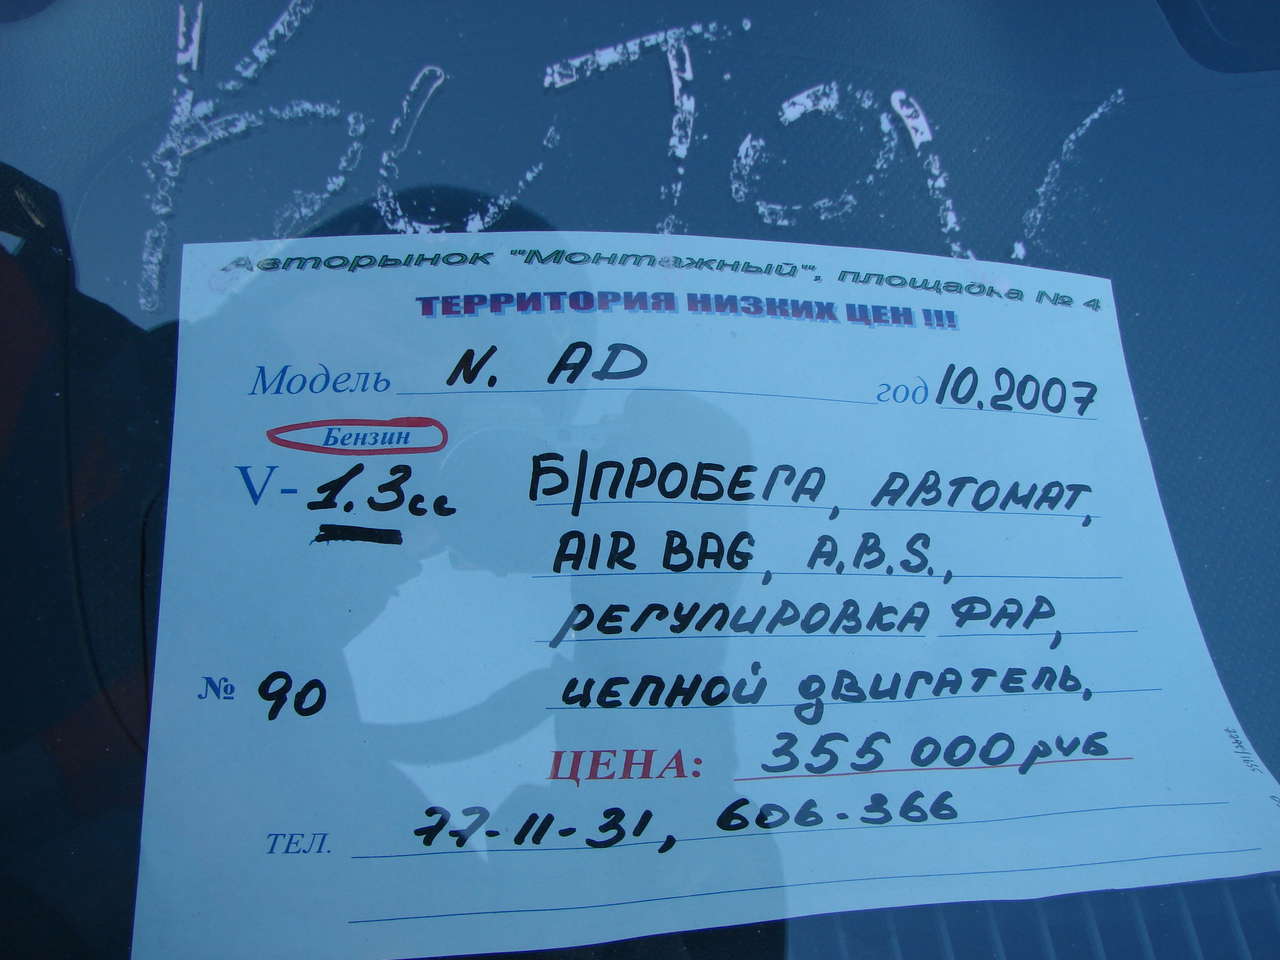 Авторынок "Монтажный", площадка № 4
ТЕРРИТОРИЯ НИЗКИХ ЦЕН !!!
Модель N. AD год 10.2007
Бензин
V- 1.3сс Б/ПРОБЕГА, АВТОМАТ,
AIR BAG, A.B.S.,
РЕГУЛИРОВКА ФАР,
№ 90 ЦЕПНОЙ ДВИГАТЕЛЬ,
ЦЕНА: 355 000 руб
ТЕЛ. 77-11-31, 606-366